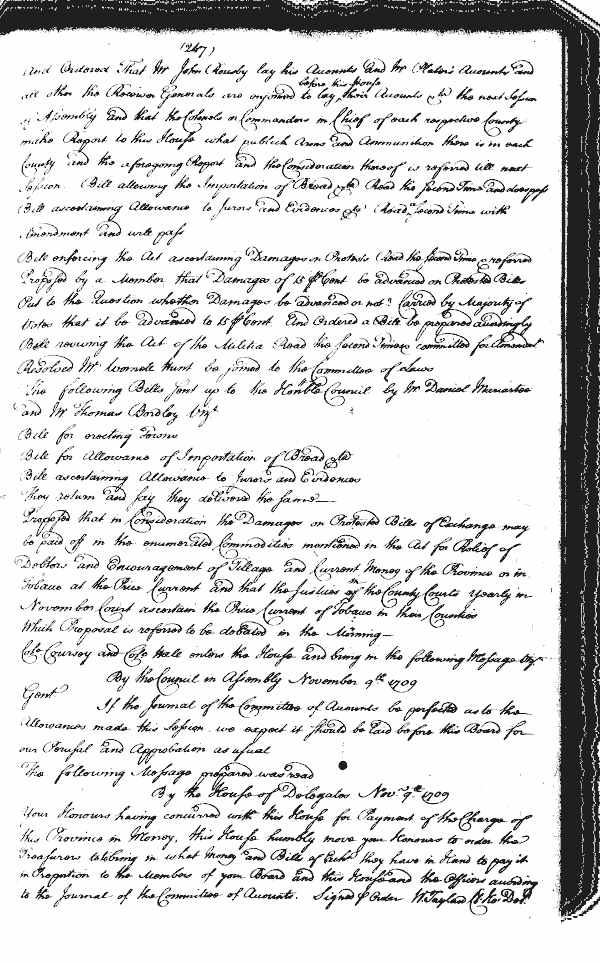 (247)
And Ordered That Mr John Rousby lay his Accounts and Mr Plater's Accounts and
before this House
all other the Receiver Generals are enjoined to lay their Accounts &ca the next Session
of Assembly and that the Colonels or Commanders in Chief of each respective County
make Report to this House what publick Arms and Ammunition there is in each
County and the aforegoing Report and the Consideration thereof is referred till next
Session. Bill allowing the Importation of Bread &ca Read the second Time and does pass
Bill ascertaining Allowance to Jurors and Evidences &ca Read second Time with
Amendment and will pass
Bill enforcing the Act ascertaining Damages on Protests Read the second Time & referred
Proposed by a Member that Damages of 15 P Cent be advanced on Protested Bills
Put to the Question whether Damages be advanced or not? Carried by Majority of
Votes that it be advanced to 15 P Cent And Ordered a Bill be prepared accordingly
Bill reviving the Act of the Militia Read the second Time & committed for Amendmt
Resolved Mr Wornell Hunt be joined to the Committee of Laws
The following Bills sent up to the Honble Council by Mr Daniel Mariartee
and Mr Thomas Bordley Vizt
Bill for erecting Towns
Bill for Allowance of Importation of Bread &ca
Bill ascertaining Allowance to Jurors and Evidences
They return and say they delivered the same
Proposed that in Consideration the Damages on Protested Bills of Exchange may
be paid off in the enumerated Commodities mentioned in the Act for Relief of
Debtors and Encouragement of Tillage and Current Money of the Province or in
Tobacco at the Price Current and that the Justices of the County Courts yearly in
in
November Court ascertain the Price Current of Tobacco in their Counties
Which Proposal is referred to be debated in the Morning
Colo Coursey and Colo Hall enters the House and bring in the following Message Vizt
By the Council in Assembly November 9th 1709
Gent
If the Journal of the Committee of Accounts be perfected as to the
Allowances made this Session we expect it should be laid before this Board for
our Perusal and Approbation as usual
The following Message prepared was read
By the House of Delegates Novr 9th 1709
Your Honours having concurred with this House for Payment of the Charge of
this Province in Money, this House humbly move your Honours to order the
Treasurers to bring in what Money and Bills of Excha they have in Hand to pay it
in Proportion to the Members of your Board and this House and the Officers according
to the Journal of the Committee of Accounts. Signed P Order W Taylard Cl Ho: Del.